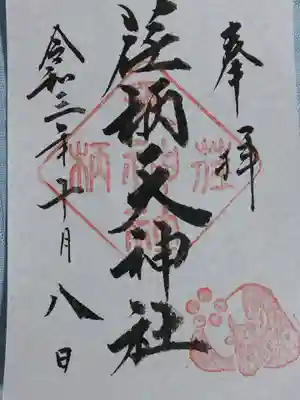 奉拝
荏柄天神社
令和三年十月八日
荏
柄